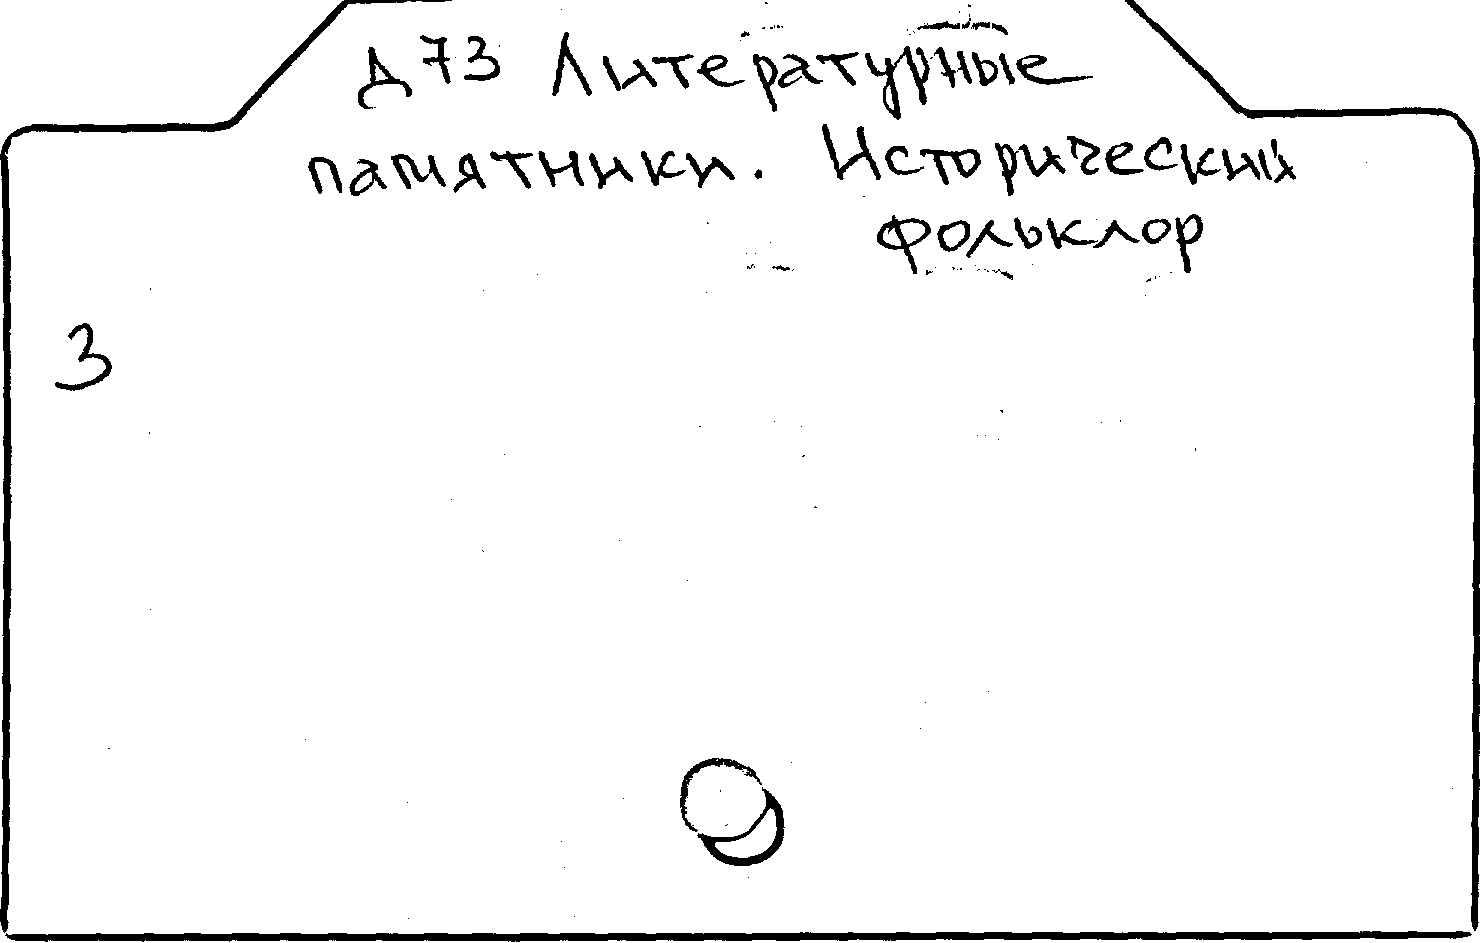 Д73 Литературные
памятники. Исторический
фольклор
3